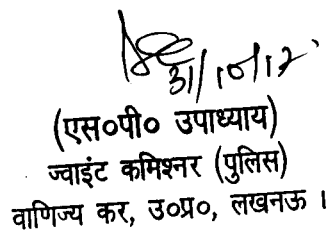 31/10/12
(एस०पी० उपाध्याय)
ज्वाइंट कमिश्नर (पुलिस)
वाणिज्य कर, उ०प्र०, लखनऊ ।